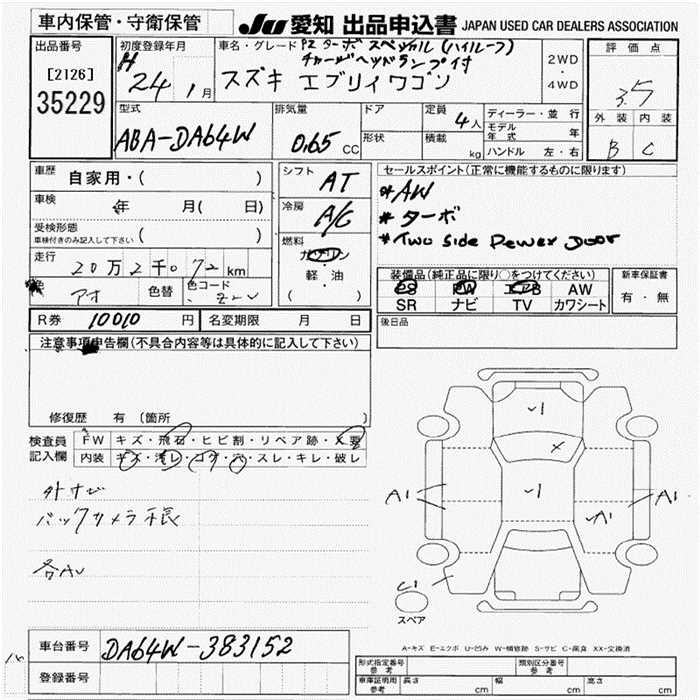 車内保管・守衛保管
JU 愛知 出品申込書 JAPAN USED CAR DEALERS ASSOCIATION
出品番号
[2126]
35229
初度登録年月
H 24 1月
車名・グレード PZ ターボ スペシャル (ハイルーフ)
スズキ エブリイワゴン
2WD
・
4WD
評価点
3.5
外装 内装
B C
型式
ABA-DA64W
排気量
0.65 CC
ドア
形状
定員
4人
積載
kg
ディーラー・並行
モデル年式 年
ハンドル 左・右
車歴 自家用・( )
車検 年 月( 日)
受検形態
車検付きのみ記入して下さい ( )
走行 20万2千072km
色 アオ 色替 色コード
シフト
AT
冷房
A/C
燃料
ガソリン
・
軽・油
( )
セールスポイント(正常に機能するものに限ります)
* AW
* ターボ
* Two Side Power Door
装備品(純正品に限り○をつけてください)
PS PW エアB AW
SR ナビ TV カワシート
新車保証書
有・無
R券 10010円 名変期限 月 日
後日品
注意事項申告欄(不具合内容等は具体的に記入して下さい)
修復歴 有 〔箇所 〕
検査員記入欄
FW キズ・飛石・ヒビ割・リペア跡・X要
内装 キズ・汚レ・コゲ・穴・スレ・キレ・破レ
外ナビ
バックカメラ
各AU
A1
A1
A1
C1
スペア
A-キズ E-エクボ U-凹み W-補修跡 S-サビ C-腐食 XX-交換済
車台番号 DA64W-383152
登録番号
形式指定番号 参考
類別区分番号 参考
車庫証明用 参考
長さ cm 幅 cm 高さ cm